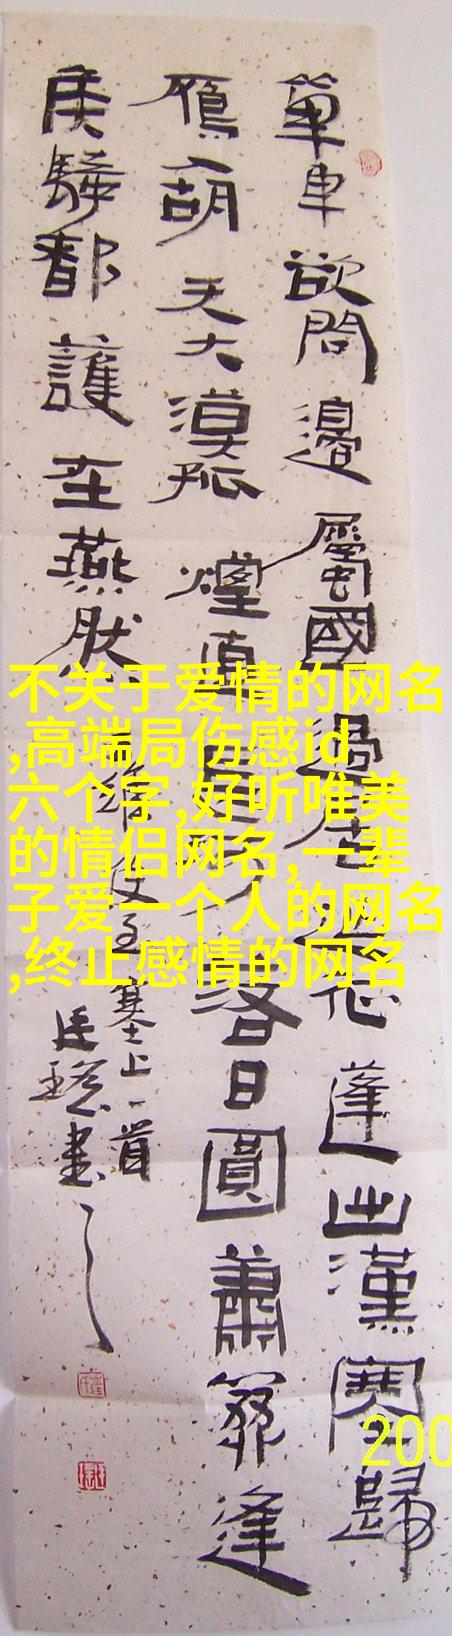 單車欲問邊屬國過居延征蓬出漢塞歸
雁入胡天大漠孤煙直長河落日圓蕭關逢
候騎都護在燕然
維使至塞上一首
書
不关于爱情的网名
,高端局伤感id
六个字,好听唯美
的情侣网名,一辈
子爱一个人的网名
,终止感情的网名
200